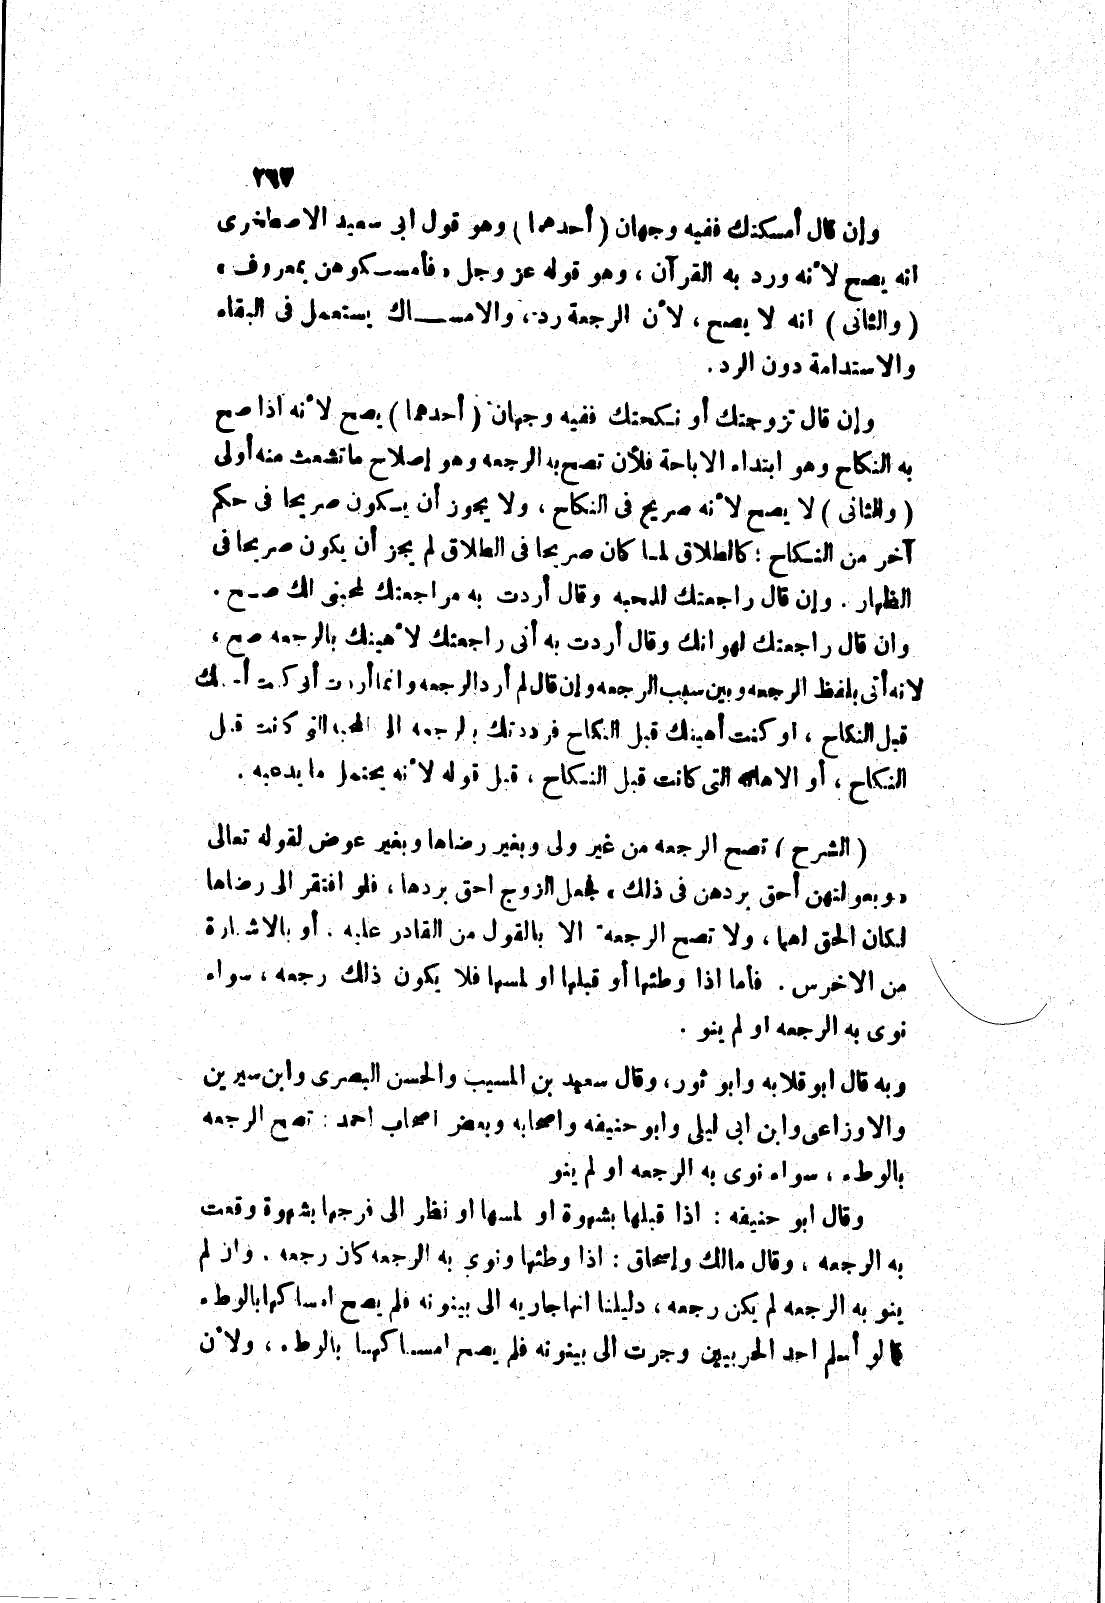 ٢٦٧
وإن قال أمسكتك ففيه وجهان ( أحدهما ) وهو قول ابى سعيد الاصطخرى
انه يصح لأنه ورد به القرآن ، وهو قوله عز وجل « فأمسكوهن بمعروف »
( والثانى ) انه لا يصح ، لأن الرجعة رد ، والامساك يستعمل فى البقاء
والاستدامة دون الرد .
وإن قال تزوجتك أو نكحتك ففيه وجهان ( أحدهما ) يصح لأنه اذا صح
به النكاح وهو ابتداء الاباحة فلأن تصح به الرجعه وهو إصلاح ما تشعث منه أولى
( والثانى ) لا يصح لأنه صريح فى النكاح ، ولا يجوز أن يكون صريحا فى حكم
آخر من النكاح : كالطلاق لما كان صريحا فى الطلاق لم يجز أن يكون صريحا فى
الظهار . وإن قال راجعتك للمحبه وقال أردت به مراجعتك لمحبتى لك صح .
وان قال راجعتك لهوانك وقال أردت به أنى راجعتك لأهينك بالرجعه صح ،
لانه أتى بلفظ الرجعه وبين سبب الرجعه وإن قال لم أرد الرجعه وانما أردت أنى كنت أحبك
قبل النكاح ، او كنت أهينك قبل النكاح فرددتك بالرجعه الى المحبه التى كانت قبل
النكاح ، أو الاهانه التى كانت قبل النكاح ، قبل قوله لأنه يحتمل ما يدعيه .
( الشرح ) تصح الرجعه من غير ولى وبغير رضاها وبغير عوض لقوله تعالى
« وبعولتهن أحق بردهن فى ذلك » فجعل الزوج احق بردها ، فلو افتقر الى رضاها
لكان الحق لهما ، ولا تصح الرجعه الا بالقول من القادر عليه . أو بالاشارة
من الاخرس . فأما اذا وطئها أو قبلها او لمسها فلا يكون ذلك رجعه ، سواء
نوى به الرجعه او لم ينو .
وبه قال ابو قلابه وابو ثور ، وقال سعيد بن المسيب والحسن البصرى وابن سيرين
والاوزاعى وابن ابى ليلى وابو حنيفه واصحابه وبعض اصحاب احمد : تصح الرجعه
بالوطء ، سواء نوى به الرجعه او لم ينو
وقال ابو حنيفه : اذا قبلها بشهوة او لمسها او نظر الى فرجها بشهوة وقعت
به الرجعه ، وقال مالك وإسحاق : اذا وطئها ونوى به الرجعه كان رجعه . وان لم
ينو به الرجعه لم يكن رجعه ، دليلنا انها جاريه الى بينونه فلم يصح امساكها بالوطء
كما لو أسلم احد الحربيين وجرت الى بينونه فلم يصح امساكها بالوطء ، ولأن